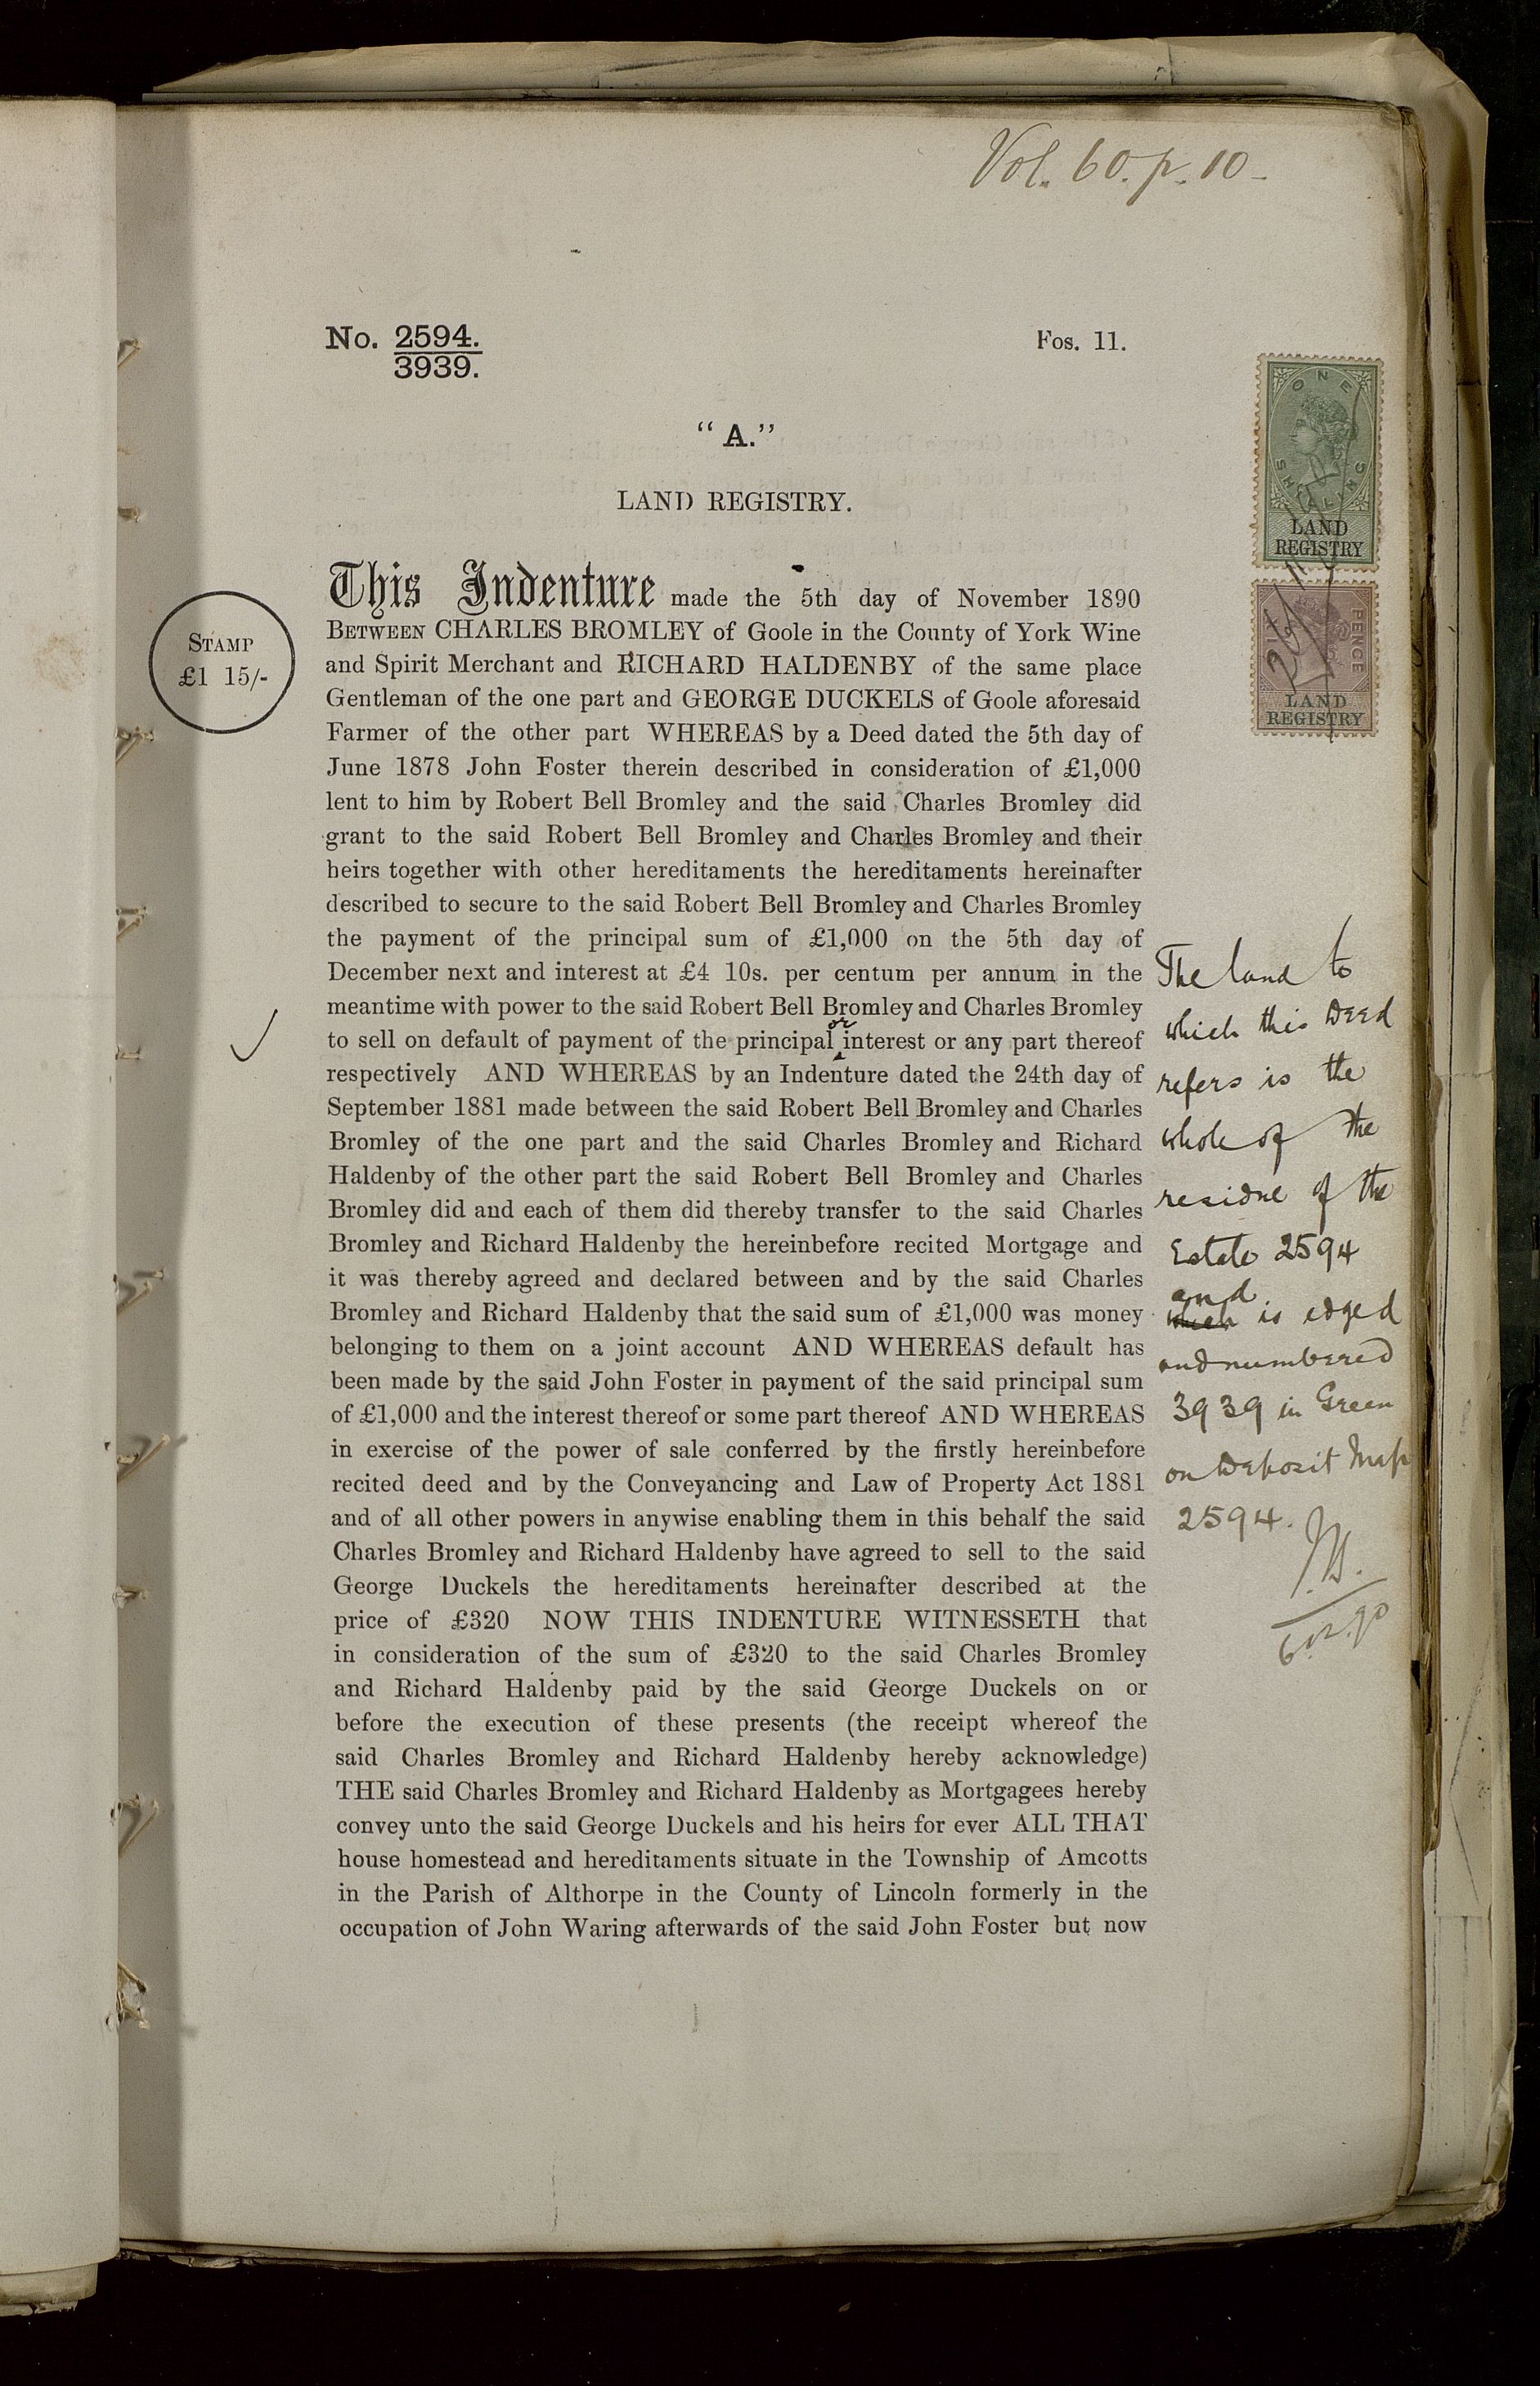 Vol. 60. p. 10
No. 2594.
3939.
Fos. 11.
"A."
LAND REGISTRY.
ONE
SHILLING
LAND
REGISTRY
PENCE
LAND
REGISTRY
STAMP
£1 15/-
This Indenture made the 5th day of November 1890
BETWEEN CHARLES BROMLEY of Goole in the County of York Wine
and Spirit Merchant and RICHARD HALDENBY of the same place
Gentleman of the one part and GEORGE DUCKELS of Goole aforesaid
Farmer of the other part WHEREAS by a Deed dated the 5th day of
June 1878 John Foster therein described in consideration of £1,000
lent to him by Robert Bell Bromley and the said Charles Bromley did
grant to the said Robert Bell Bromley and Charles Bromley and their
heirs together with other hereditaments the hereditaments hereinafter
described to secure to the said Robert Bell Bromley and Charles Bromley
the payment of the principal sum of £1,000 on the 5th day of
December next and interest at £4 10s. per centum per annum in the
meantime with power to the said Robert Bell Bromley and Charles Bromley
to sell on default of payment of the principal or interest or any part thereof
respectively AND WHEREAS by an Indenture dated the 24th day of
September 1881 made between the said Robert Bell Bromley and Charles
Bromley of the one part and the said Charles Bromley and Richard
Haldenby of the other part the said Robert Bell Bromley and Charles
Bromley did and each of them did thereby transfer to the said Charles
Bromley and Richard Haldenby the hereinbefore recited Mortgage and
it was thereby agreed and declared between and by the said Charles
Bromley and Richard Haldenby that the said sum of £1,000 was money
belonging to them on a joint account AND WHEREAS default has
been made by the said John Foster in payment of the said principal sum
of £1,000 and the interest thereof or some part thereof AND WHEREAS
in exercise of the power of sale conferred by the firstly hereinbefore
recited deed and by the Conveyancing and Law of Property Act 1881
and of all other powers in anywise enabling them in this behalf the said
Charles Bromley and Richard Haldenby have agreed to sell to the said
George Duckels the hereditaments hereinafter described at the
price of £320 NOW THIS INDENTURE WITNESSETH that
in consideration of the sum of £320 to the said Charles Bromley
and Richard Haldenby paid by the said George Duckels on or
before the execution of these presents (the receipt whereof the
said Charles Bromley and Richard Haldenby hereby acknowledge)
THE said Charles Bromley and Richard Haldenby as Mortgagees hereby
convey unto the said George Duckels and his heirs for ever ALL THAT
house homestead and hereditaments situate in the Township of Amcotts
in the Parish of Althorpe in the County of Lincoln formerly in the
occupation of John Waring afterwards of the said John Foster but now
The land to
which this Deed
refers is the
whole of the
residue of the
Estate 2594
and
which is edged
and numbered
3939 in Green
on Deposit Map
2594.